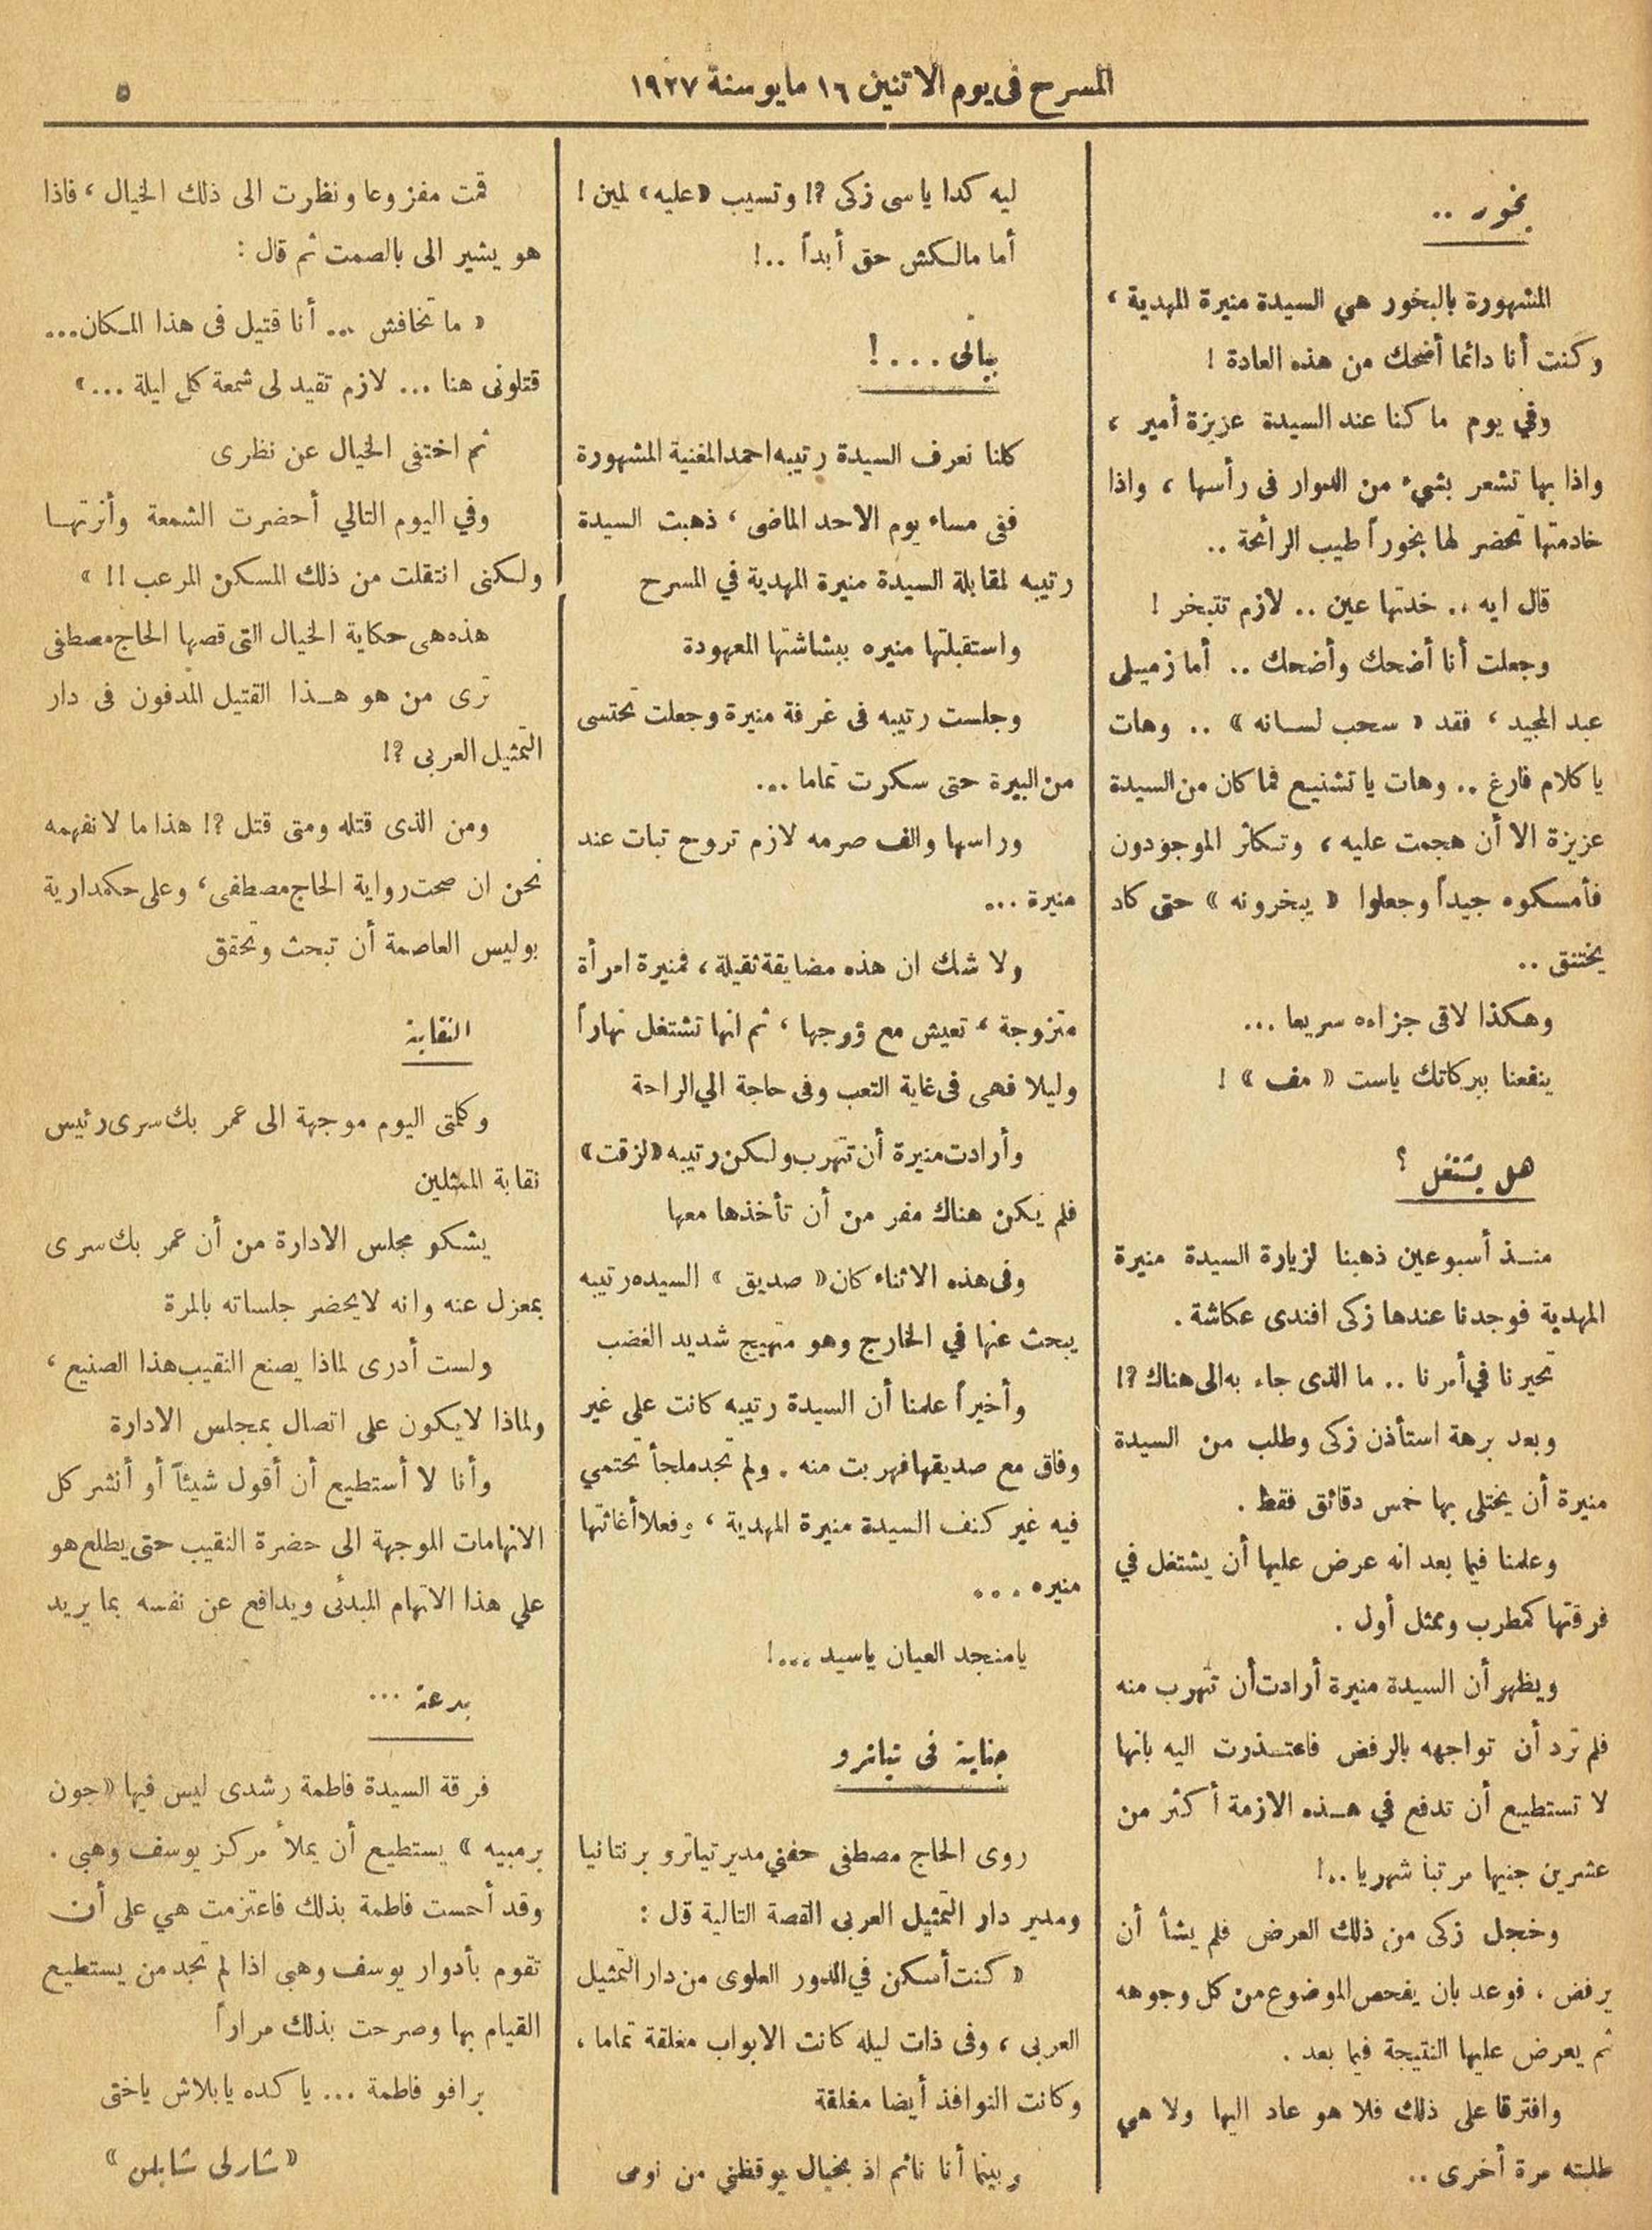 المسرح فى يوم الاثنين ١٦ مايو سنة ١٩٢٧
٥
بخور ..
المشهورة بالبخور هي السيدة منيرة المهدية ،
وكنت أنا دائما أضحك من هذه العادة !
وفي يوم ما كنا عند السيدة عزيزة أمير ،
واذا بها تشعر بشيء من الدوار فى رأسها ، واذا
خادمتها تحضر لها بخوراً طيب الرائحة ..
قال ايه .. خدتها عين .. لازم تتبخر !
وجعلت أنا أضحك وأضحك .. أما زميلى
عبد المجيد ، فقد « سحب لسانه » .. وهات
يا كلام فارغ .. وهات يا تشنيع فما كان من السيدة
عزيزة الا أن هجمت عليه ، وتكاثر الموجودون
فأمسكوه جيداً وجعلوا « يبخرونه » حتى كاد
يختنق ..
وهكذا لاقى جزاءه سريعا ...
ينفعنا ببركاتك ياست « مف » !
هل يشتغل ؟
منذ أسبوعين ذهبنا لزيارة السيدة منيرة
المهدية فوجدنا عندها زكى افندى عكاشة .
تحيرنا في أمرنا .. ما الذى جاء به الى هناك ؟!
وبعد برهة استأذن زكى وطلب من السيدة
منيرة أن يختلى بها خمس دقائق فقط .
وعلمنا فيما بعد انه عرض عليها أن يشتغل في
فرقتها كمطرب وممثل أول .
ويظهر أن السيدة منيرة أرادت أن تهرب منه
فلم ترد أن تواجهه بالرفض فاعتذرت اليه بانها
لا تستطيع أن تدفع في هذه الازمة أكثر من
عشرين جنيها مرتبا شهريا ..!
وخجل زكى من ذلك العرض فلم يشأ أن
يرفض ، فوعد بان يفحص الموضوع من كل وجوهه
ثم يعرض عليها النتيجة فيما بعد .
وافترقا على ذلك فلا هو عاد اليها ولا هي
طلبته مرة أخرى ..
ليه كدا ياسى زكى ؟! وتسيب « عليه » لمين !
أما مالكش حق أبداً ..!
ببالى ...!
كلنا نعرف السيدة رتيبه احمد المغنية المشهورة
ففى مساء يوم الاحد الماضى ، ذهبت السيدة
رتيبه لمقابلة السيدة منيرة المهدية في المسرح
واستقبلتها منيره ببشاشتها المعهودة
وجلست رتيبه فى غرفة منيرة وجعلت تحتسى
من البيرة حتى سكرت تماما ...
وراسها والف صرمه لازم تروح تبات عند
منيرة ...
ولا شك ان هذه مضايقة ثقيلة ، فمنيرة امرأة
متزوجة ، تعيش مع زوجها ، ثم انها تشتغل نهاراً
وليلا فهى فى غاية التعب وفى حاجة الي الراحة
وأرادت منيرة أن تهرب ولكن رتيبه « لزقت »
فلم يكن هناك مفر من أن تأخذها معها
وفى هذه الاثناء كان « صديق » السيده رتيبه
يبحث عنها في الخارج وهو متهيج شديد الغضب
وأخيراً علمنا أن السيدة رتيبه كانت على غير
وفاق مع صديقها فهربت منه . ولم تجد ملجأ تحتمي
فيه غير كنف السيدة منيرة المهدية ، وفعلا أغاثتها
منيره ...
يامنجد العيان ياسيد ...!
جناية فى تياترو
روى الحاج مصطفى حفني مدير تياترو برنتانيا
ومدير دار التمثيل العربى القصة التالية قل :
« كنت أسكن في الدور العلوى من دار التمثيل
العربى ، وفى ذات ليله كانت الابواب مغلقة تماما ،
وكانت النوافذ أيضا مغلقة
وبينما أنا نائم اذ بخيال يوقظني من نومى
قمت مفزوعا ونظرت الى ذلك الخيال ، فاذا
هو يشير الى بالصمت ثم قال :
« ما تخافش ... أنا قتيل فى هذا المكان ...
قتلونى هنا ... لازم تقيد لى شمعة كل ليلة ... »
ثم اختفى الخيال عن نظرى
وفي اليوم التالي أحضرت الشمعة وأنرتها
ولكنى انتقلت من ذلك المسكن المرعب !! »
هذه هى حكاية الخيال التى قصها الحاج مصطفى
ترى من هو هذا القتيل المدفون فى دار
التمثيل العربى ؟!
ومن الذى قتله ومتى قتل ؟! هذا ما لا نفهمه
نحن ان صحت رواية الحاج مصطفى ، وعلى حكمدارية
بوليس العاصمة أن تبحث وتحقق
النقابة
وكلمتى اليوم موجهة الى عمر بك سرى رئيس
نقابة الممثلين
يشكو مجلس الادارة من أن عمر بك سرى
بمعزل عنه وانه لا يحضر جلساته بالمرة
ولست أدرى لماذا يصنع النقيب هذا الصنيع ،
ولماذا لا يكون على اتصال بمجلس الادارة
وأنا لا أستطيع أن أقول شيئاً أو أنشر كل
الاتهامات الموجهة الى حضرة النقيب حتى يطلع هو
علي هذا الاتهام المبدئى ويدافع عن نفسه بما يريد
بدعة ...
فرقة السيدة فاطمة رشدى ليس فيها « جون
برمبيه » يستطيع أن يملأ مركز يوسف وهبى .
وقد أحست فاطمة بذلك فاعتزمت هي على أن
تقوم بأدوار يوسف وهبى اذا لم تجد من يستطيع
القيام بها وصرحت بذلك مراراً
برافو فاطمة ... يا كده يا بلاش ياختى
« شارلى شابلن »